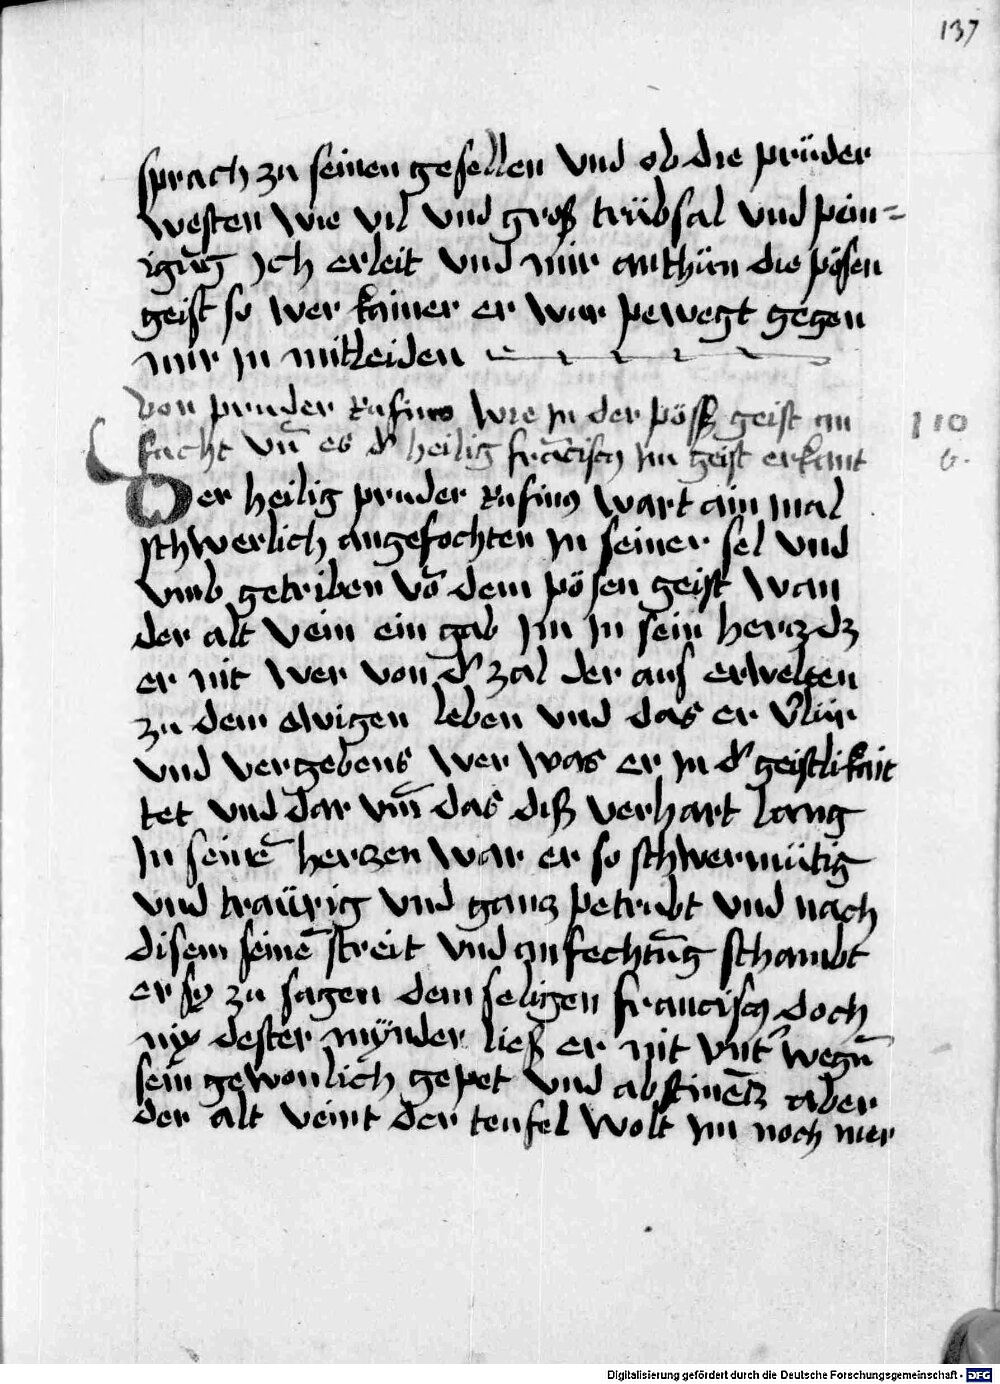 137
sprach zu seinen gesellen Vnd ob die prüder
westen wie vil vnd groß trübsal vnd pein-
igūg Jch erleit vnd mir anthün die pösen
geist so wer kainer er wur pewegt gegen
mir jn mitleiden
Von pruder Rufino wie jn der pöß geist an
facht vn̄ es d' heilig frācisch jm geist erkant
110
6.
Der heilig pruder Rufinus wart ain mal
schwerlich angefochten jn seiner sel vnd
vmb getriben vō dem pösen geist wan
der alt vein ein gab jm jn sein hercz dz
er nit wer von d' zal der aus erwelten
zu dem ewigen leben vnd das er v'lür
vnd vergebens wer was er jn d' geistlikait
tet vnd dar vm̄ das diß verhart lang
jn seinē herczen war er so schwermütig
vnd traürig vnd gancz petrubt vnd nach
disem seinē streit vnd anfechtūg schambt
er sy zu sagen dem seligen francisch doch
nix dester mÿnder ließ er nit vnt' wegn̄
sein gewonlich gepet vnd abstinēcz aber
der alt veint der teufel wolt jm noch mer
Digitalisierung gefördert durch die Deutsche Forschungsgemeinschaft - DFG